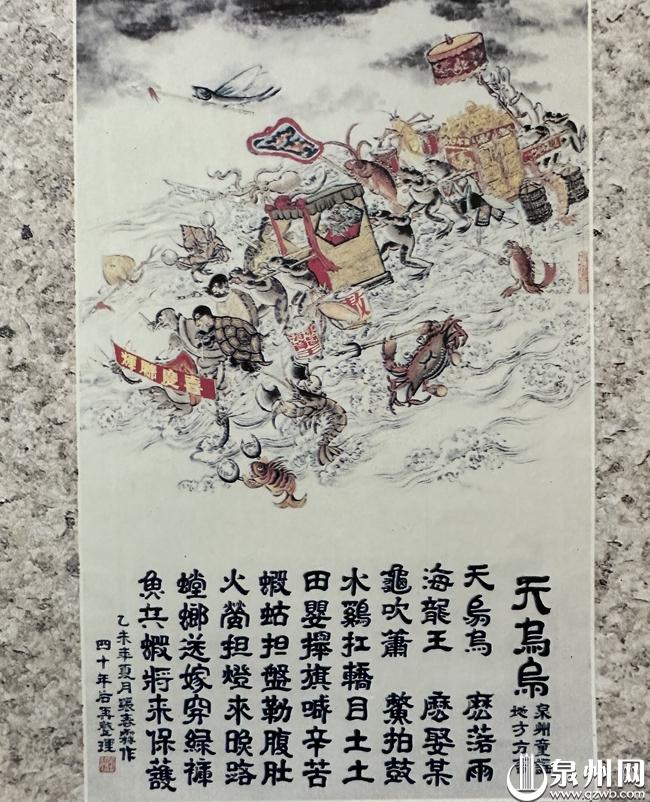 喜慶聯輝
天烏烏
泉州童謠
地方方
天烏烏 麽落雨
海龍王 麽娶某
龜吹簫 鱉拍鼓
水鷄扛轎目土土
田嬰攑旗喊辛苦
蝦姑担盤勒腹肚
火螢担燈來晚路
螳螂送嫁穿綠褲
魚兵蝦將来保護
乙未年夏月張 作
四十年后再整理
泉州网
www.qzwb.com